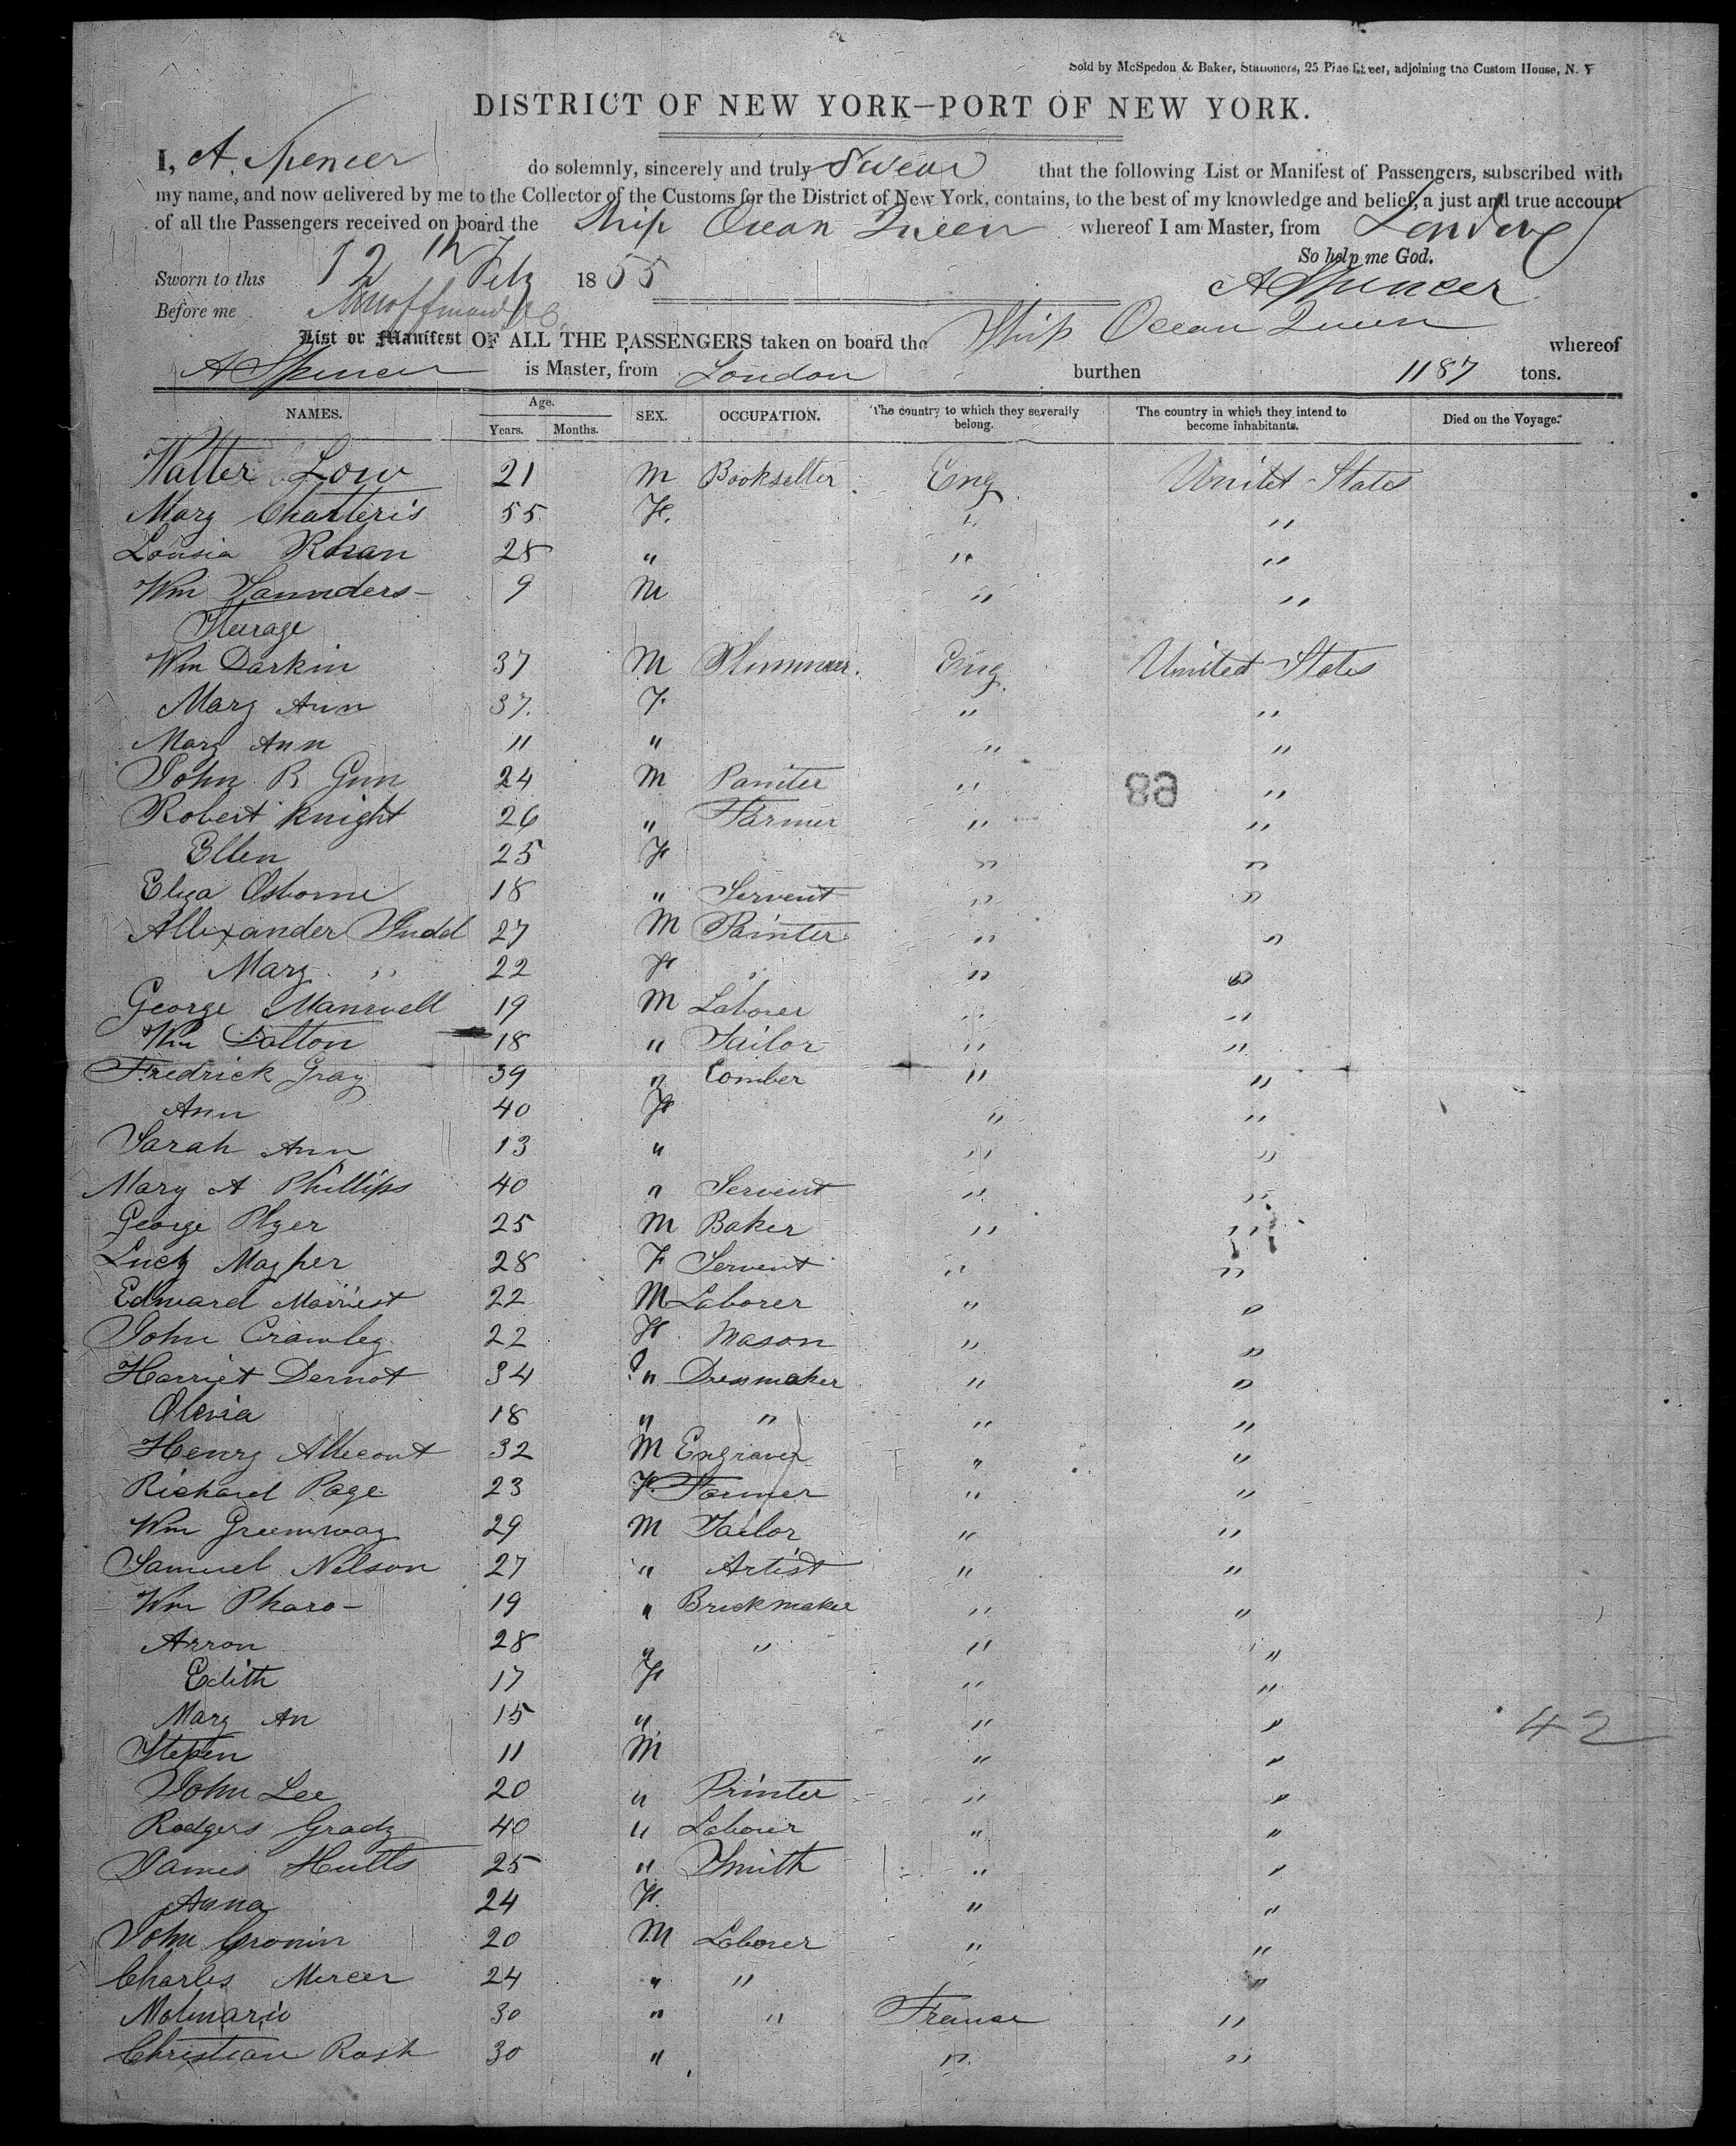 Sold by McSpedon & Baker, Stationers, 25 Pine Street, adjoining the Custom House, N. Y
DISTRICT OF NEW YORK—PORT OF NEW YORK.
I, A. Spencer do solemnly, sincerely and truly Swear that the following List or Manifest of Passengers, subscribed with
my name, and now delivered by me to the Collector of the Customs for the District of New York, contains, to the best of my knowledge and belief, a just and true account
of all the Passengers received on board the Ship Ocean Queen whereof I am Master, from London
So help me God.
Sworn to this 12th Feby 1855 A Spencer
Before me
List or Manifest OF ALL THE PASSENGERS taken on board the Ship Ocean Queen whereof
A Spencer is Master, from London burthen 1187 tons.
NAMES. Age. Years. Months. SEX. OCCUPATION. The country to which they severally belong. The country in which they intend to become inhabitants. Died on the Voyage.
Walter Low 21 M Bookseller Eng United States
Mary Charteris 55 F. " "
Lousia 28 " " "
Wm Saunders- 9 M " "
Steerage
Wm Darkin 37 M Plummer. Eng United States
Mary Ann 37. F. " "
Mary Ann 11 " " "
John R Gun 24 M Paniter " "
68
Robert Knight 26 " Farmer " "
Ellen 25 F " "
Eliza Osborne 18 " Servent " "
Allexander Judd 27 M Painter " "
Mary " 22 F " " "
George Manwell 19 M Laborer " "
Wm Dalton 18 " Tailor " "
Fredrick Gray 39 " Comber " "
Ann 40 F " "
Sarah Ann 13 " " "
Mary A Phillips 40 " Servent " "
George Plyer 25 M Baker " "
Lucy Mayher 28 F Servent " "
Edward Marriest 22 M Laborer " "
John Crawley 22 F Mason " "
Harriet Dernot 34 " Dressmaker " "
Olivia 18 " " " "
Henry Allecout 32 M Engraver " "
Richard Page 23 F. Farmer " "
Wm Greenway 29 M Tailor " "
Samuel Nelson 27 " Artist " "
Wm Pharo- 19 " Brickmaker " "
Arron 28 " " " "
Edith 17 F " "
Mary An 15 " " "
42
Stepen 11 M " "
John Lee 20 " Printer " "
Rodgers Grady 40 " Laborer " "
James Hutts 25 " Smith " "
Anna 24 F. " "
John Cronin 20 M Laborer " "
Charles Mercer 24 " " " "
Molinario 30 " " France "
Christian Rosh 30 " " "